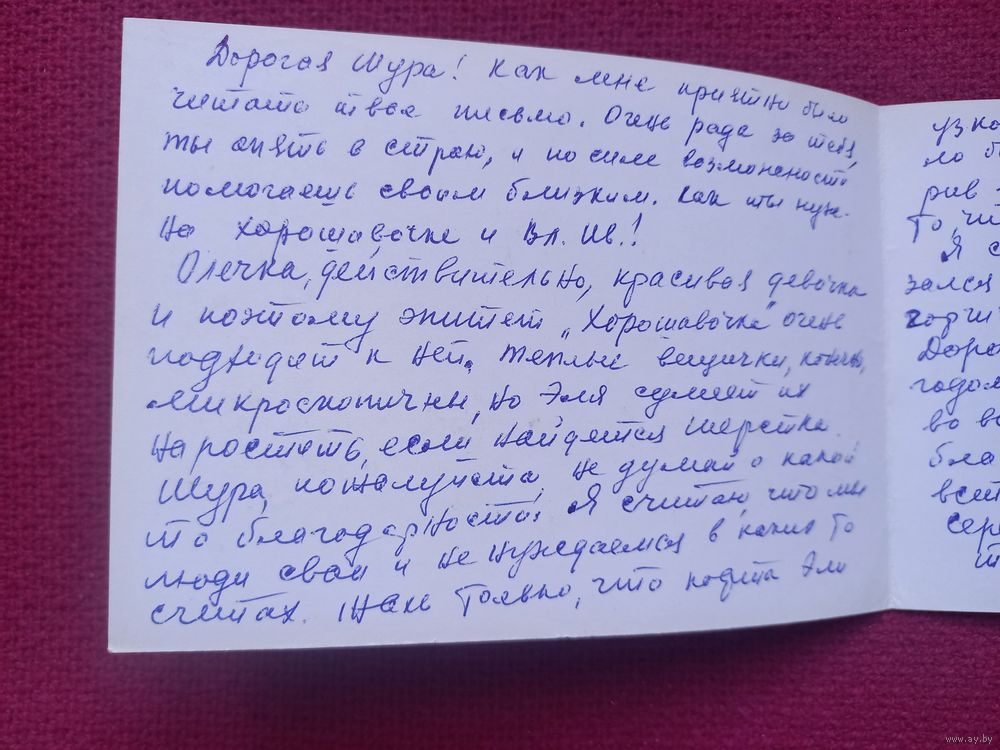 Дорогая Шура! Как мне приятно было
читать твое письмо. Очень рада за тебя,
ты опять в строю, и по силе возможности
помогаешь своим близким. Как ты нуж-
на хорошавочке и Вл. Ив.!
Олечка, действительно, красивая девочка
и поэтому эпитет „Хорошавочка" очень
подходит к ней. Теплые вещички, конечно,
микроскопичны, но Эля сумеет их
наростить, если найдется шерстка.
Шура, пожалуйста, не думай о какой
то благодарности. Я считаю, что мы
люди свои и не нуждаемся в каких то
счетах. Жаль только, что кофта Эли
узко
ло б
рив
то, чт
Я с
зался
Доро
годом
во вс
бла
всем
сер
www.ay.by